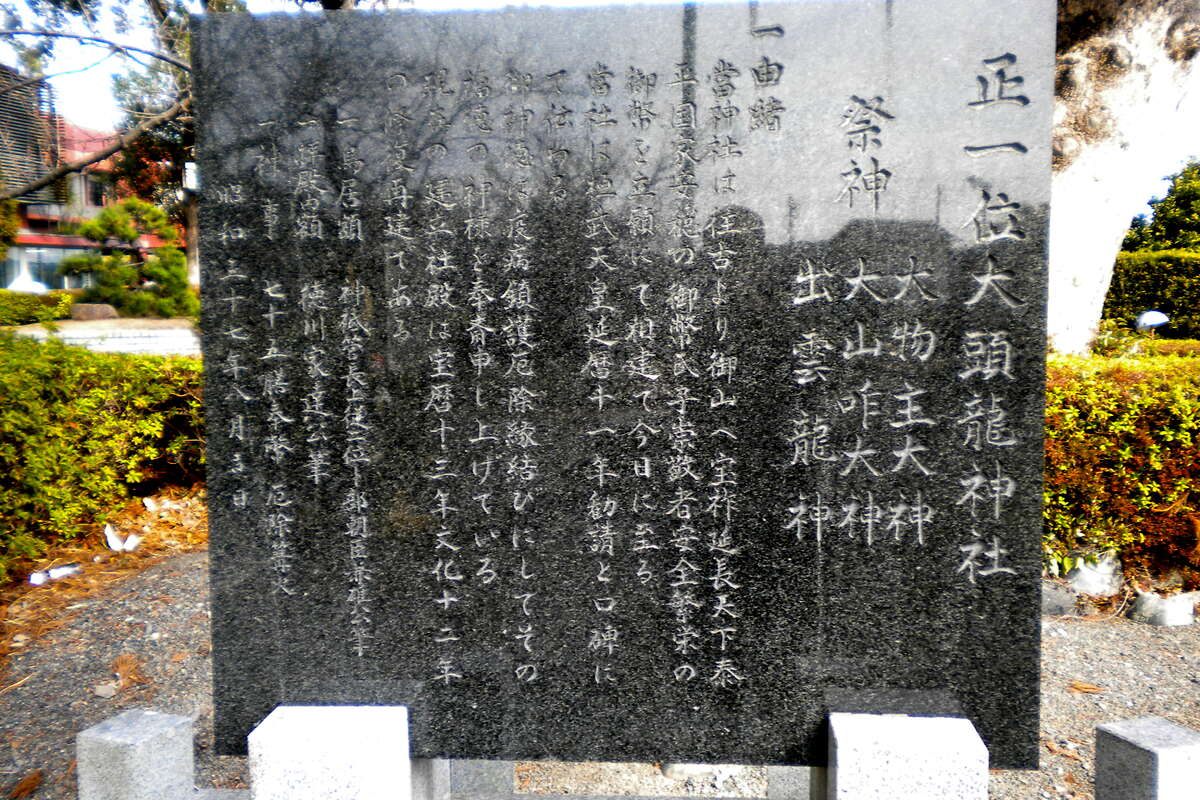 正一位大頭龍神社
祭神
大物主大神
大山咋大神
出雲龍神
一由緒
當神社は往古より御山へ宝祚延長天下泰
平国天安穏の御幣氏子崇敬者安全繁栄の
御幣を立願にて相建て今日に至る
當社は桓武天皇延暦十一年勧請と口碑に
て伝わる
御神徳は疫病鎮護厄除縁結びにしてその
の神様と奉斎申し上げている
現在の建立社殿は宝暦十三年文化十二年
の修復再建である
一鳥居額 神祇管長上従二位卜部朝臣公筆
一拝殿額 徳川家達公筆
一神事 七十五膳奉幣 厄除
昭和三十七年八月吉日